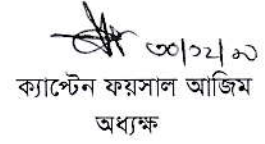 ৩০/১২/২০
ক্যাপ্টেন ফয়সাল আজিম
অধ্যক্ষ